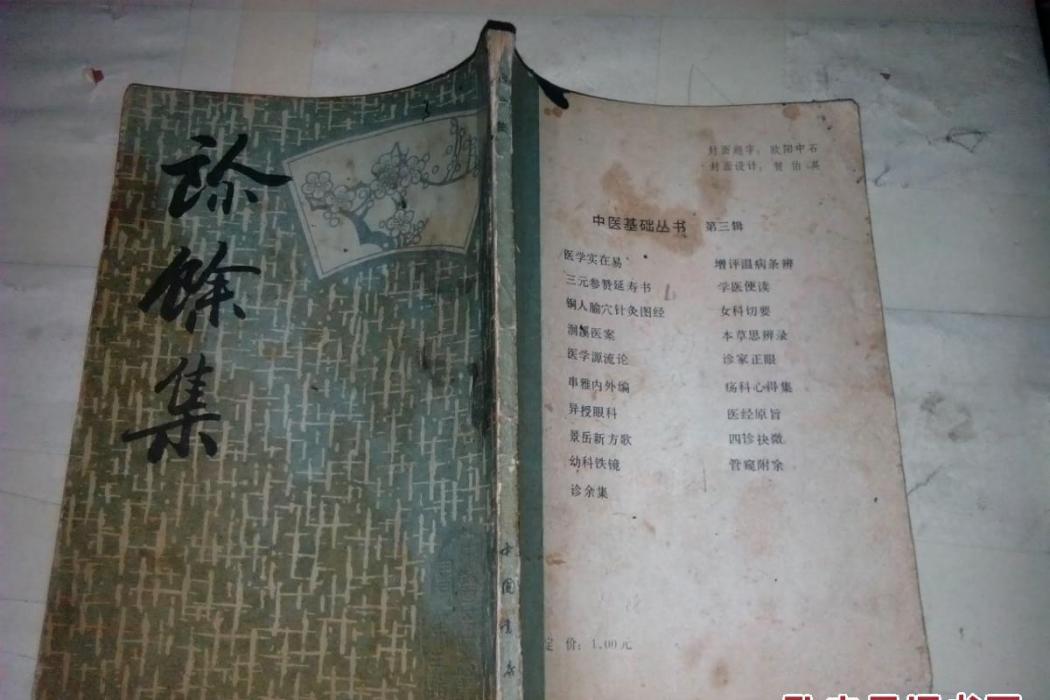 診餘集
中国书店
封面题字：欧阳中石
封面设计：
中医基础丛书 第三辑
医学实在易
三元参赞延寿书
铜人腧穴针灸图经
洄溪医案
医学源流论
串雅内外编
异授眼科
景岳新方歌
幼科铁镜
诊余集
增评温病条辨
学医便读
女科切要
本草思辨录
诊家正眼
疡科心得集
医经原旨
四诊抉微
管窥附余
定 价：1.00元